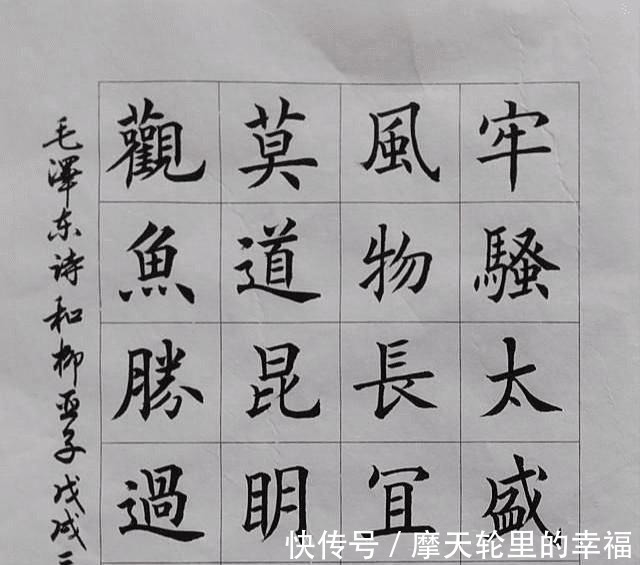 牢騷太盛
風物長宜
莫道昆明
觀魚勝過
毛澤东诗和柳亚子戊戌三
快传号/摩天轮里的幸福